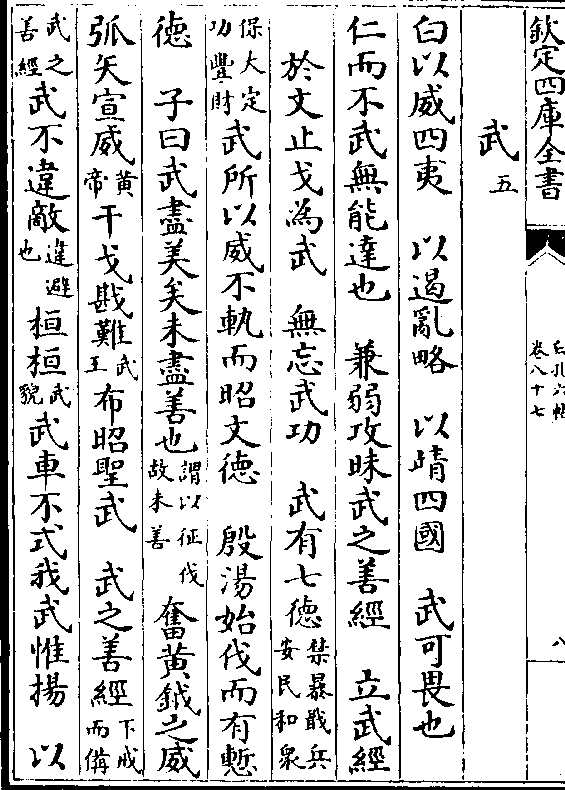 欽定四庫全書
白孔六帖
卷八十七
八
武五
白以威四夷 以遏亂略 以靖四國 武可畏也
仁而不武無能達也 兼弱攻昧武之善經 立武經
於文止戈為武 無忘武功 武有七德禁暴戢兵安民和衆
保大定功豐財武所以威不軌而昭文德 殷湯始伐而有慙
德 子曰武盡美矣未盡善也謂以征伐故未善 奮黃鉞之威
弧矢宣威黃帝干戈戡難武王布昭聖武 武之善經下戒而備
武之善經武不違敵違避也 桓桓武貌武車不式我武惟揚 以